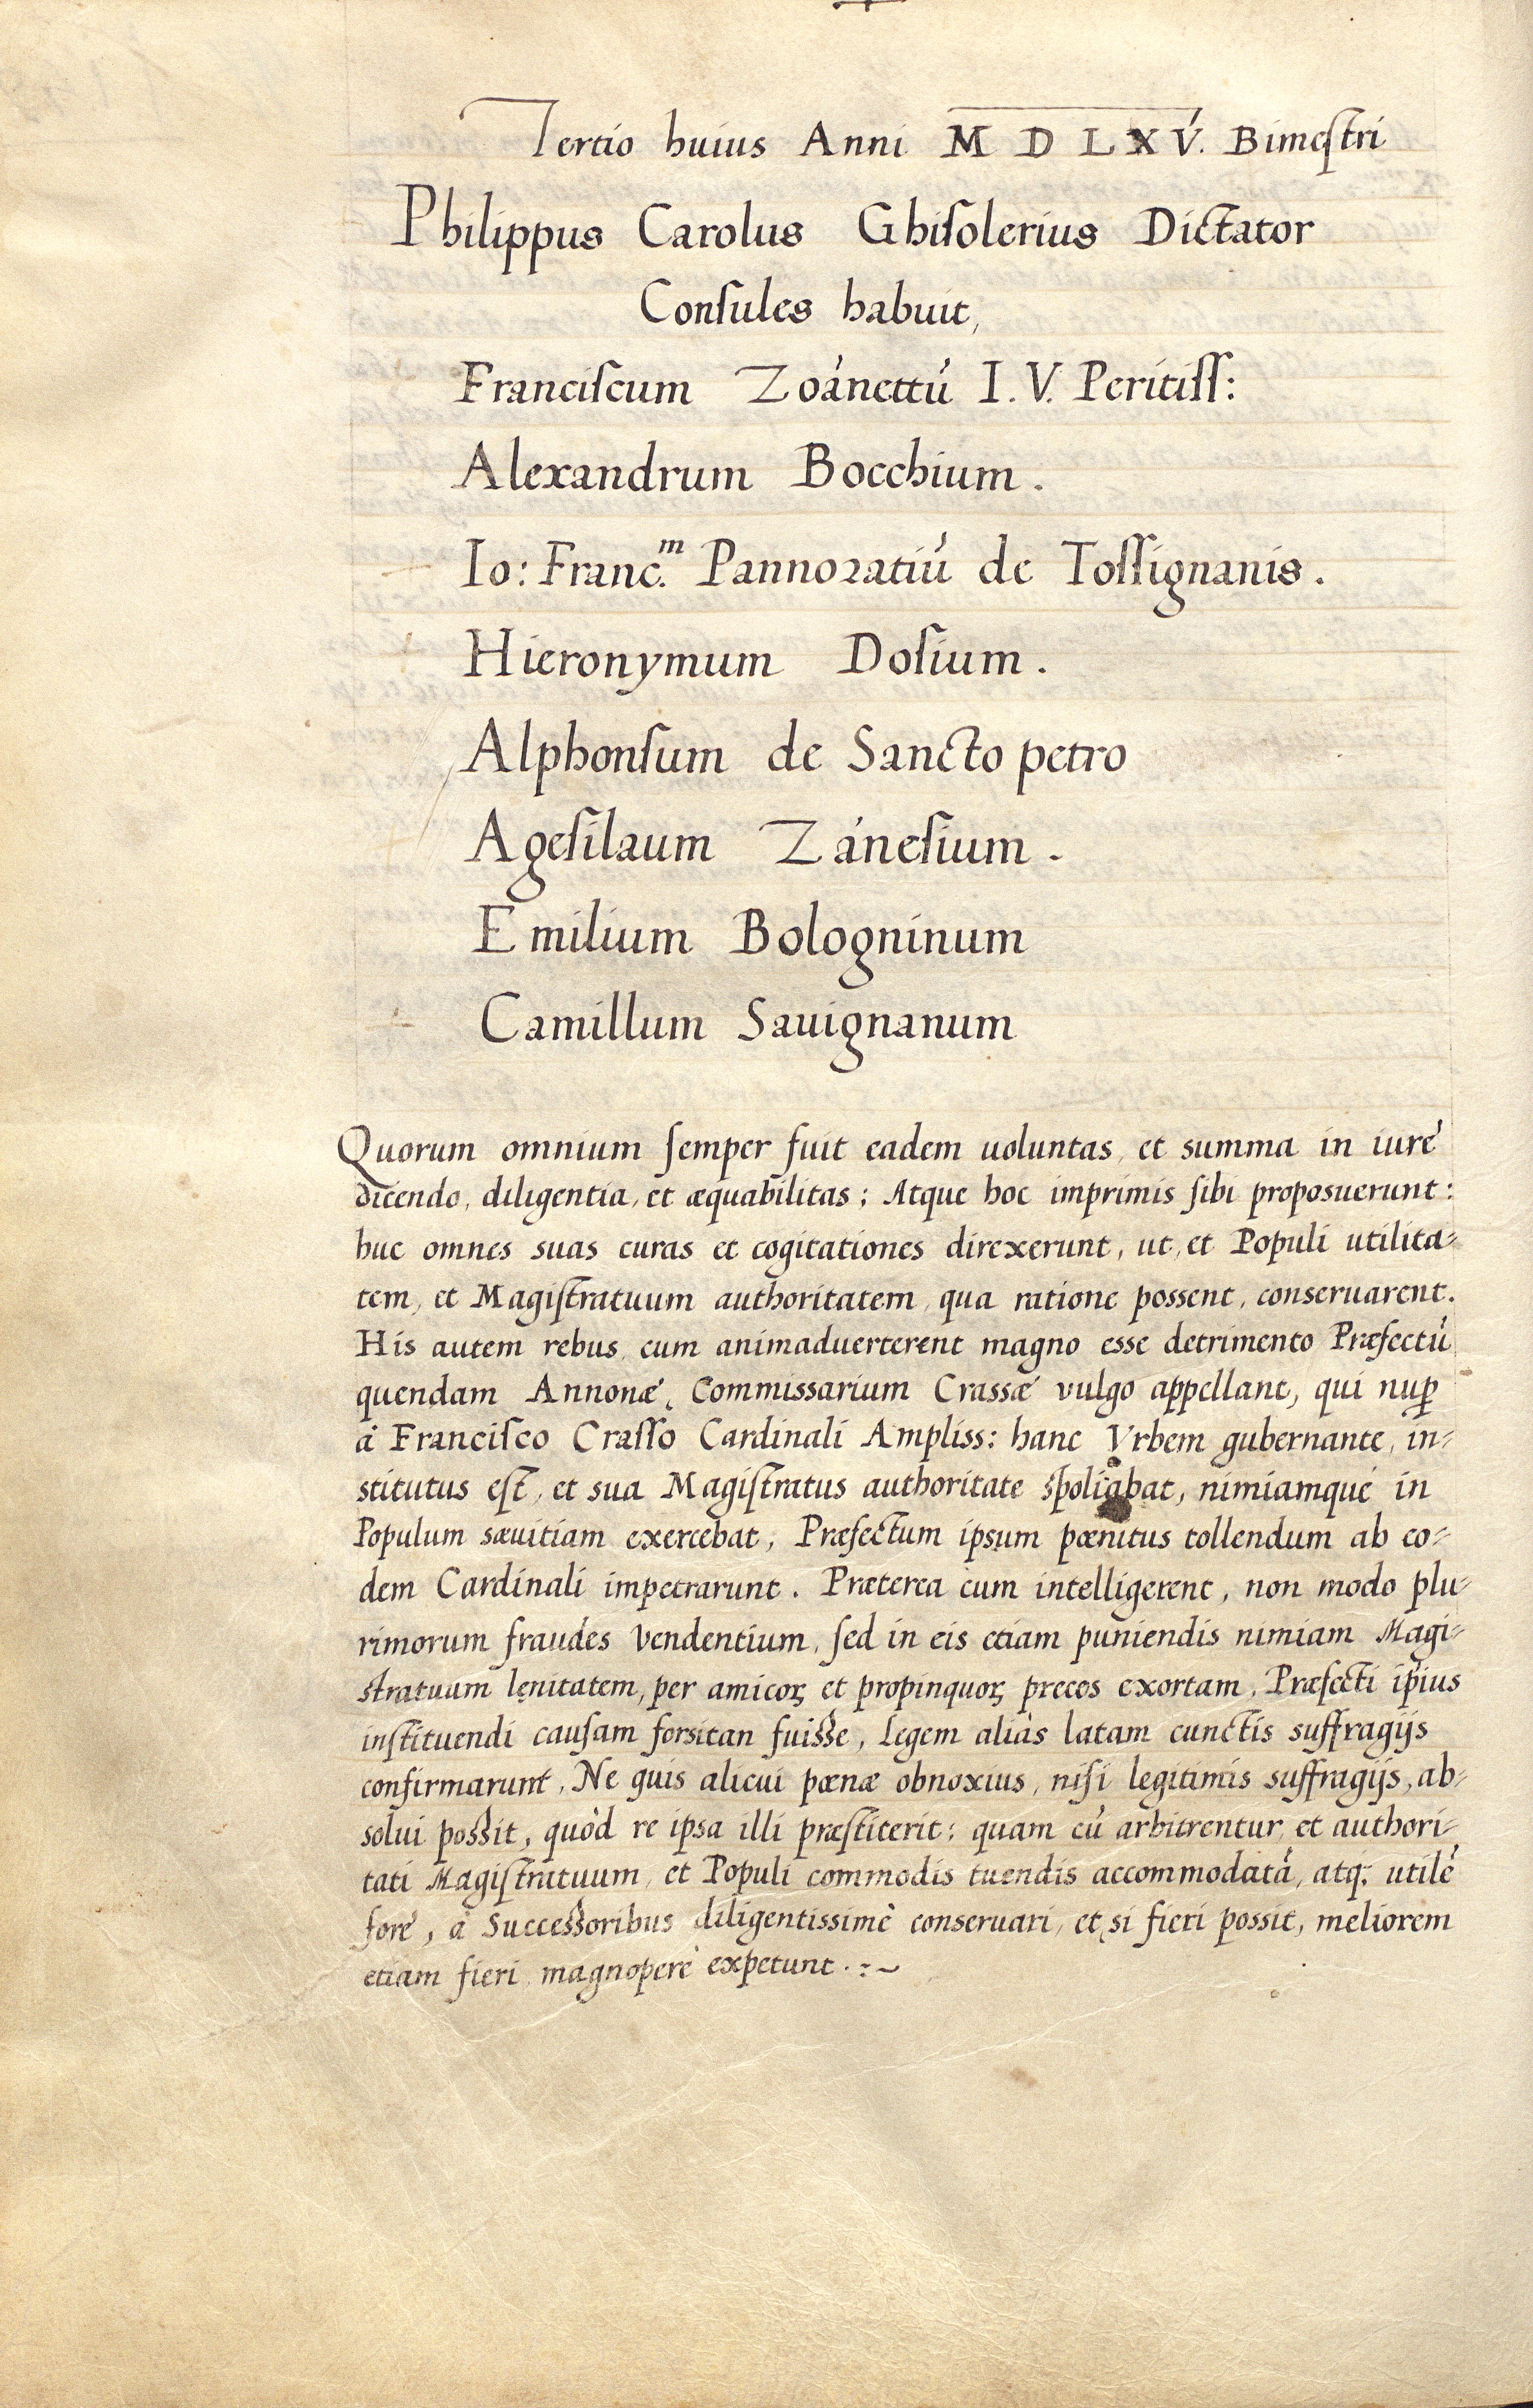 Tertio huius Anni M D L X V. Bimestri
Philippus Carolus Ghisolerius Dictator
Consules habuit,
Franciscum Zoánettú I. V. Peritiss:
Alexandrum Bocchium.
Io: Franc.m Pannoratiú de Tossignanis.
Hieronymum Dosium.
Alphonsum de Sancto petro
Agesilaum Zánesium.
Emilium Bologninum
Camillum Sauignanum
Quorum omnium semper fuit eadem uoluntas, et summa in iuré
dicendo, diligentia, et æquabilitas; Atque hoc imprimis sibi proposuerunt:
huc omnes suas curas et cogitationes direxerunt, ut, et Populi utilita=
tem, et Magistratuum authoritatem, qua ratione possent, conseruarent.
His autem rebus, cum animaduerterent magno esse detrimento Præfectú
quendam Annonæ, Commissarium Crassæ vulgo appellant, qui nuꝑ
á Francisco Crasso Cardinali Ampliss: hanc Vrbem gubernante, in=
stitutus est, et sua Magistratus authoritate spoliabat, nimiamqué in
Populum sæuitiam exercebat, Præfectum ipsum pœnitus tollendum ab eo=
dem Cardinali impetrarunt. Præterea cum intelligerent, non modo plu=
rimorum fraudes vendentium, sed in eis etiam puniendis nimiam Magi=
stratuum lenitatem, per amicoꝝ et propinquoꝝ preces exortam, Præfecti ip̃ius
instituendi causam forsitan fuisse, Legem aliàs latam cunctis suffragijs
confirmarunt, Ne quis alicui pœnæ obnoxius, nisi legitimis suffragijs, ab=
solui possit, quòd re ipsa illi præstiterit: quam cú arbitrentur, et authori=
tati Magistratuum, et Populi commodis tuendis accommodatá, atq; utilé
foré, á Successoribus diligentissimè conseruari, et, si fieri possit, meliorem
etiam fieri, magnoperè expetunt.:~